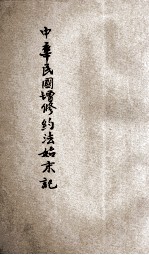 中華民國增修約法始末記